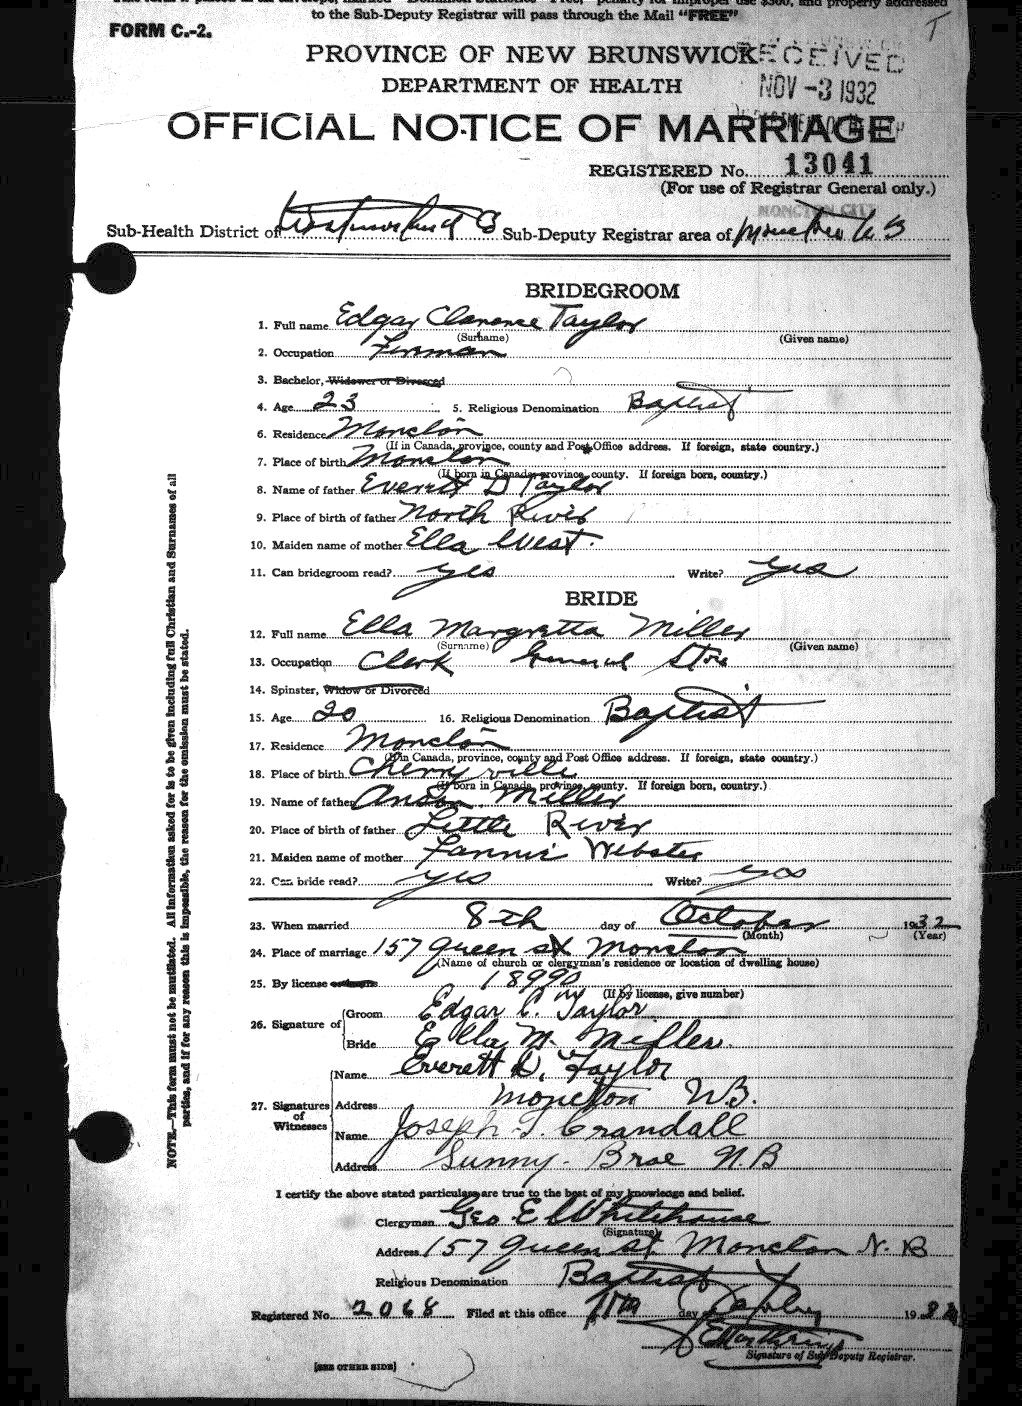 to the Sub-Deputy Registrar will pass through the Mail "FREE"
FORM C.-2.
PROVINCE OF NEW BRUNSWICK
RECEIVED
DEPARTMENT OF HEALTH
NOV -3 1932
OFFICIAL NOTICE OF MARRIAGE
REGISTERED No. 13041
(For use of Registrar General only.)
MONCTON CITY
Sub-Health District of Westmorland Sub-Deputy Registrar area of Moncton N B
BRIDEGROOM
1. Full name Edgar Clarence Taylor
(Surname) (Given name)
2. Occupation Fireman
3. Bachelor, Widower or Divorced
4. Age 23 5. Religious Denomination Baptist
6. Residence Moncton
(If in Canada, province, county and Post Office address. If foreign, state country.)
7. Place of birth Moncton
(If born in Canada, province, county. If foreign born, country.)
8. Name of father Everett D Taylor
9. Place of birth of father North River
10. Maiden name of mother Ella West.
11. Can bridegroom read? yes Write? yes
BRIDE
12. Full name Ella Margretta Miller
(Surname) (Given name)
13. Occupation Clerk General Store
14. Spinster, Widow or Divorced
15. Age 20 16. Religious Denomination Baptist
17. Residence Moncton
(If in Canada, province, county and Post Office address. If foreign, state country.)
18. Place of birth Cherryville
(If born in Canada, province, county. If foreign born, country.)
19. Name of father Anson Miller
20. Place of birth of father Little River
21. Maiden name of mother Fannie Webster
22. Can bride read? yes Write? yes
23. When married 8th day of October 1932
(Month) (Year)
24. Place of marriage 157 Queen st Moncton
(Name of church or clergyman's residence or location of dwelling house)
25. By license or banns 18990
(If by license, give number)
26. Signature of Groom Edgar C. Taylor
Bride Ella M. Miller.
27. Signatures of Witnesses Name Everett D. Taylor
Address Moncton N.B.
Name Joseph T. Crandall
Address Sunny Brae N.B
I certify the above stated particulars are true to the best of my knowledge and belief.
Clergyman Geo E Whitehouse
(Signature)
Address 157 Queen st Moncton N.B
Religious Denomination Baptist
Registered No. 2068 Filed at this office 11th day 1932
Signature of Sub-Deputy Registrar.
[SEE OTHER SIDE]
NOTE.—This form must not be mutilated. All information asked for is to be given including full Christian and Surnames of all
parties, and if for any reason this is impossible, the reason for the omission must be stated.